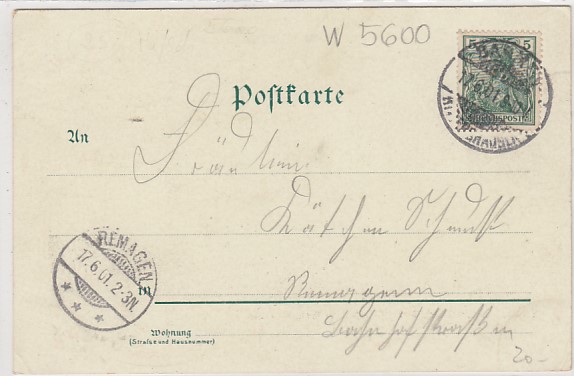 W 5600
5 5
REICHSPOST
Postkarte
An
Fräulein
Käthchen Schmidt
REMAGEN
17.6.01. 2-3N.
in
Remagen
Bahnhofstraße
Wohnung
(Straße und Hausnummer)
20.-